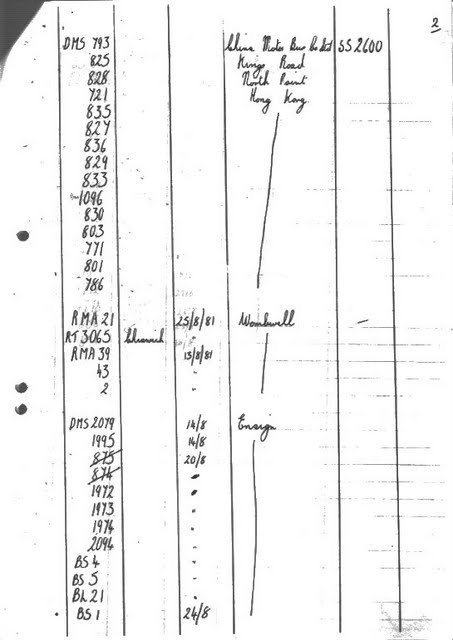 2
DMS 793 China Motor Bus Co Ltd SS 2600
825 Kings Road
828 North Point
721 Hong Kong
835
827
836
829
833
1096
830
803
771
801
786
RMA 21 25/8/81 Wombwell –
RT 3065 "
RMA 39 13/8/81
43 "
2 "
DMS 2079 14/8 Ensign
1995 14/8
875 20/8
874 "
1972 "
1973 "
1974 "
2094 "
BS 4 "
BS 5 "
BL 21 "
BS 1 24/8